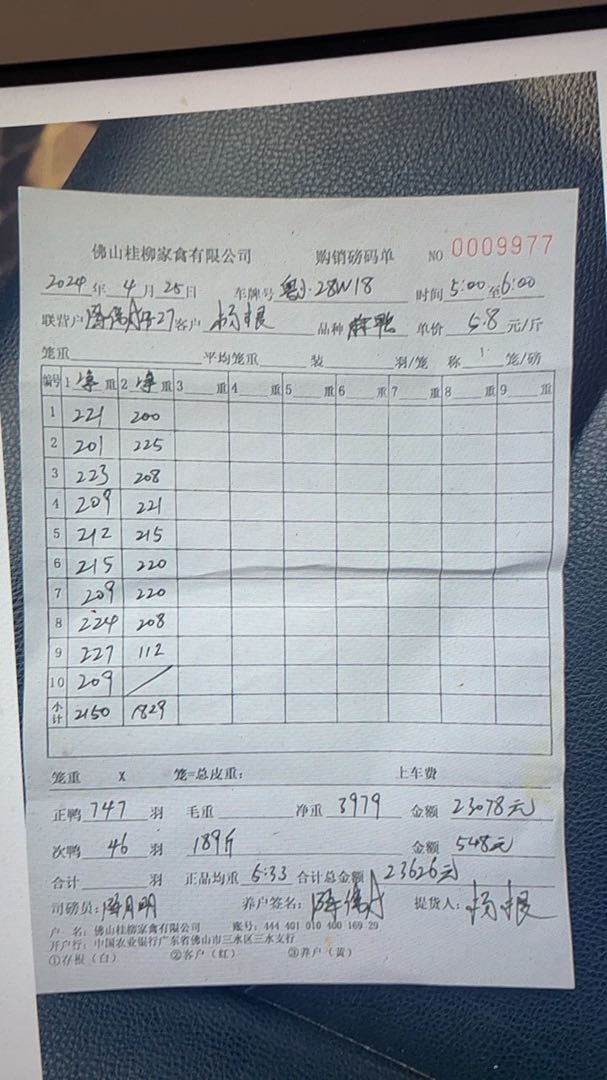 佛山桂柳家禽有限公司 购销磅码单 NO 0009977
2024年4月25日 车牌号 28W18 时间5:00至6:00
联营户 27客户 杨根 品种 麻鸭 单价 5.8 元/斤
笼重 平均笼重 装 羽/笼 称 1 笼/磅
编号 1 净 重 2 净 重 3 重 4 重 5 重 6 重 7 重 8 重 9 重
1 221 200
2 201 225
3 223 208
4 209 221
5 212 215
6 215 220
7 209 220
8 224 208
9 227 112
10 209
小计 2150 1829
笼重 X 笼=总皮重: 上车费
正鸭 747 羽 毛重 净重 3979 金额 23078元
次鸭 46 羽 189斤 金额 548元
合计 羽 正品均重 5.33 合计总金额 23626元
司磅员: 养户签名: 提货人: 杨根
户 名: 佛山桂柳家禽有限公司 账号: 444 401 010 400 169 29
开户行: 中国农业银行广东省佛山市三水区三水支行
①存根(白) ②客户(红) ③养户(黄)